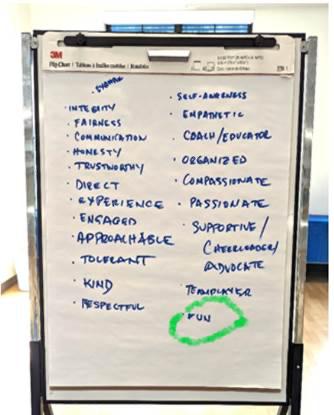 3M
Flip Chart / Tableau à feuilles mobiles / Rotafolio
· STRONG
· INTEGRITY
· FAIRNESS
· COMMUNICATION
· HONESTY
· TRUSTWORTHY
· DIRECT
· EXPERIENCE
· ENGAGED
· APPROACHABLE
· TOLERANT
· KIND
· RESPECTFUL
· SELF-AWARENESS
· EMPATHETIC
· COACH/EDUCATOR
· ORGANIZED
· COMPASSIONATE
· PASSIONATE
· SUPPORTIVE/
CHEERLEADER/
ADVOCATE
· TEAMPLAYER
· FUN